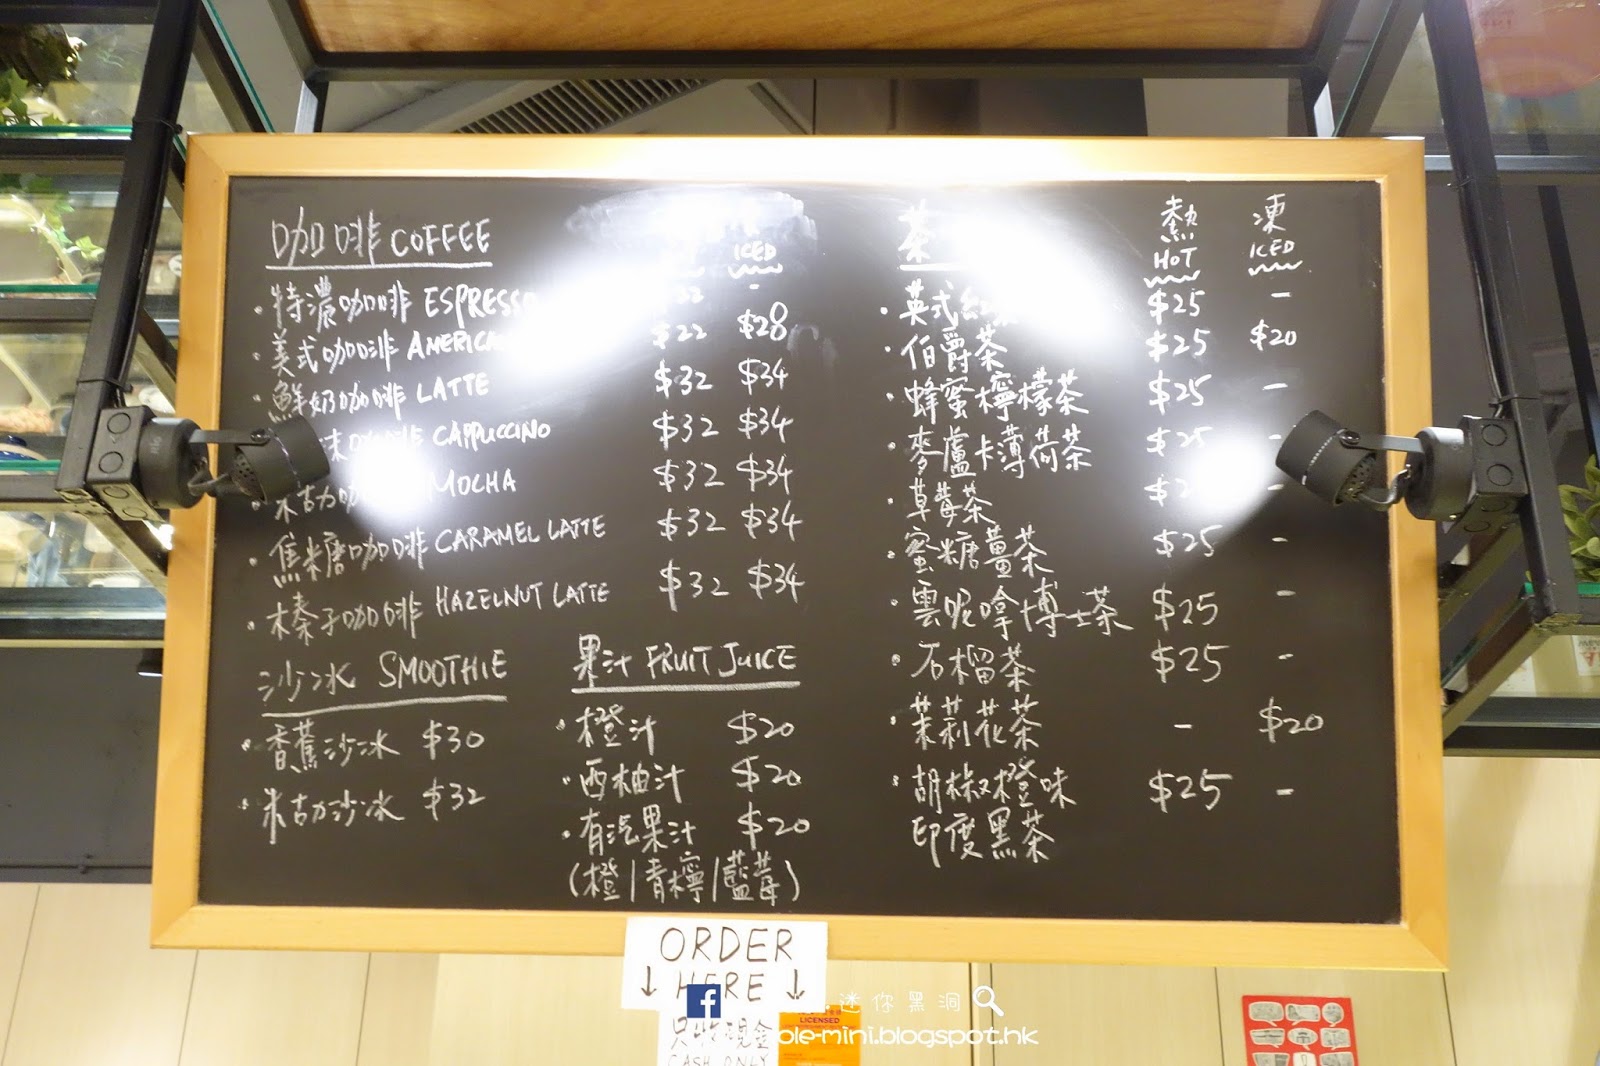 咖啡 COFFEE
ICED
特濃咖啡 ESPRESSO -
美式咖啡 $22 $28
鮮奶咖啡 LATTE $32 $34
咖啡 CAPPUCCINO $32 $34
朱古力 MOCHA $32 $34
焦糖咖啡 CARAMEL LATTE $32 $34
榛子咖啡 HAZELNUT LATTE $32 $34
沙冰 SMOOTHIE
香蕉沙冰 $30
朱古力沙冰 $32
果汁 FRUIT JUICE
橙汁 $20
西柚汁 $20
有汽果汁 $20
(橙/青檸/藍莓)
茶 熱 凍
HOT ICED
英式紅茶 $25 -
伯爵茶 $25 $20
蜂蜜檸檬茶 $25 -
麥盧卡薄荷茶 $25 -
草莓茶 -
蜜糖薑茶 $25 -
雲呢拿博士茶 $25 -
石榴茶 $25 -
茉莉花茶 - $20
胡椒橙味 $25 -
印度黑茶
ORDER
↓ HERE ↓
只收現金
CASH ONLY
LICENSED
迷你黑洞
ole-mini.blogspot.hk